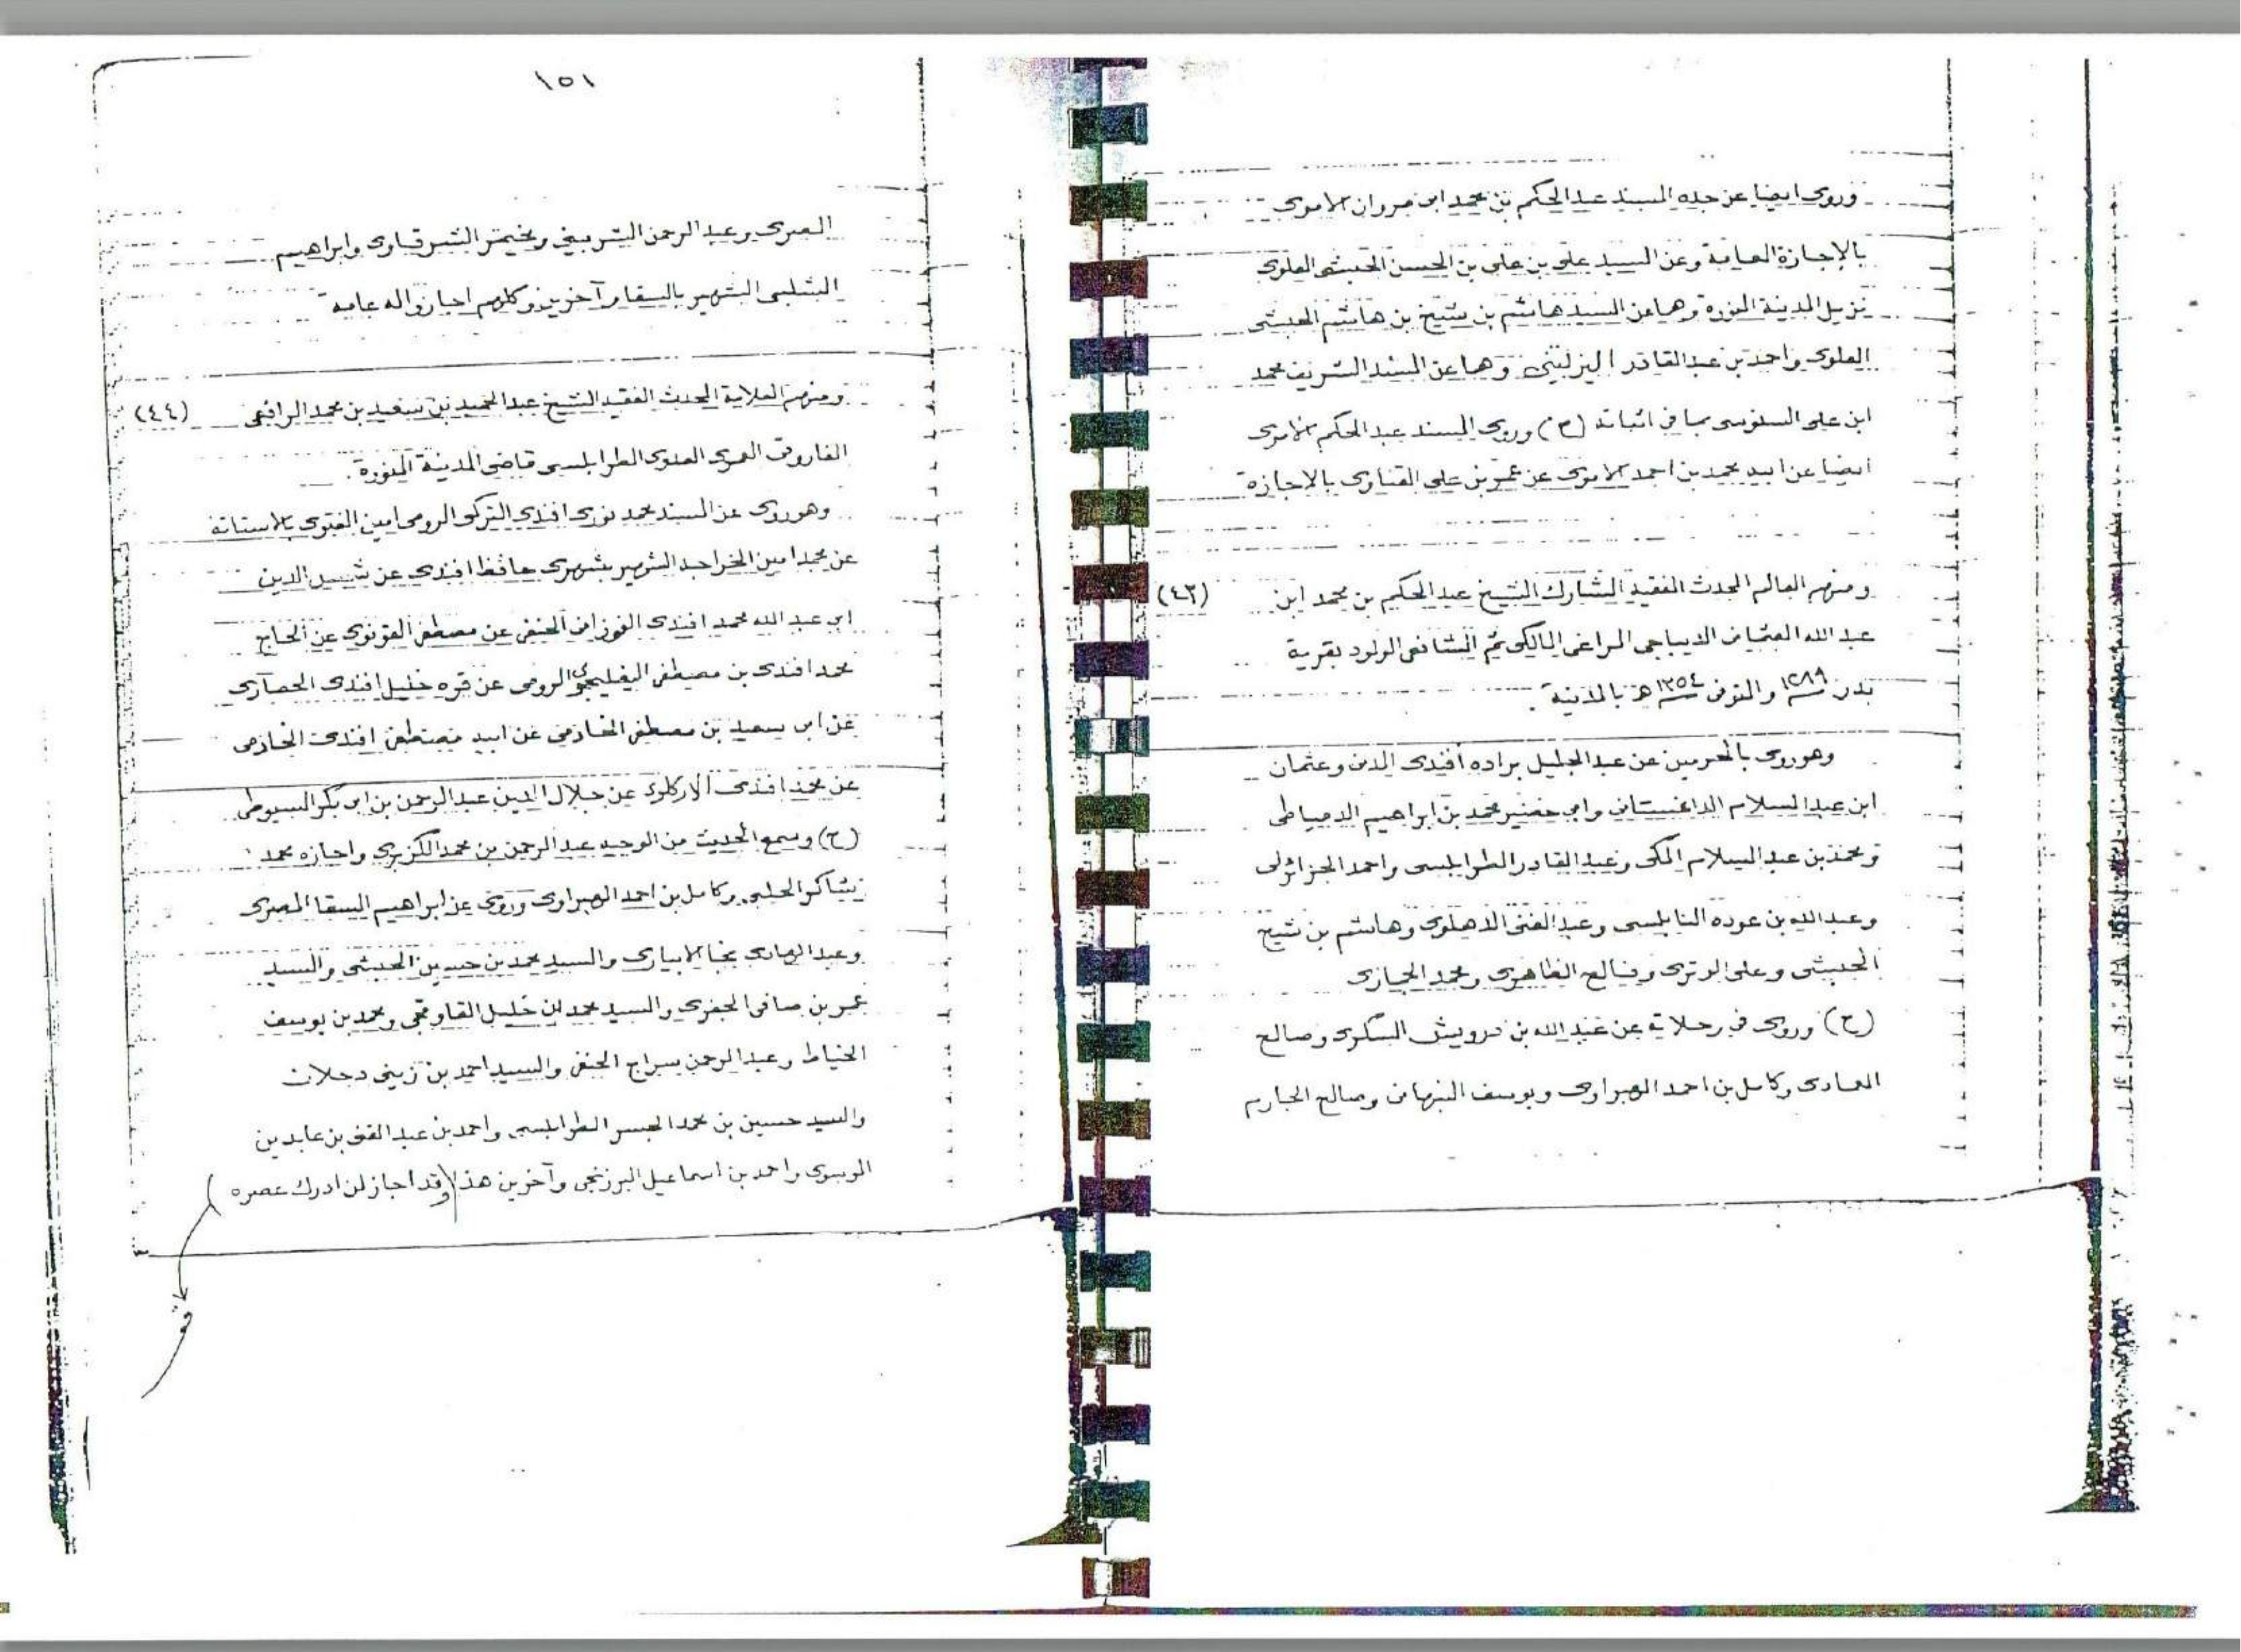 وروى ايضا عن جده المسند عبد الحكم بن محمد ابن مروان الاموى
بالإجازة العامة وعن السيد على بن على بن الحسن الحبشى العلوى
نزيل المدينة المنورة وهما عن السيد هاشم بن شيخ بن هاشم الحبشى
العلوى واحمد بن عبد القادر وهما عن السيد الشريف محمد
ابن على السنوسى بما فى اثباته (ح) وروى المسند عبد الحكم الاموى
ايضا عن ابيه محمد بن احمد الاموى عن عمر بن على بالاجازة
ومنهم العالم المحدث الفقيه المشارك الشيخ عبد الحكيم بن محمد ابن (٤٣)
عبد الله العثمانى الديباجى المراغى المالكى ثم الشافعى المولود بقرية
بدر ١٢٨٩ والمتوفى ١٣٥٤ هـ بالمدينة .
وهو روى بالحرمين عن عبد الجليل براده أفندى المدنى وعثمان
ابن عبد السلام الداغستانى وابى خضير محمد بن ابراهيم الدمياطى
ومحمد بن عبد السلام المكى وعبد القادر الطرابلسى واحمد الجزائرلى
وعبد الله بن عوده النابلسى وعبد الغنى الدهلوى وهاشم بن شيخ
الحبشى وعلى الوترى وفالح الظاهرى ومحمد الحجازى
(ح) وروى فى رحلاته عن عبد الله بن درويش السكرى وصالح
العادى وكامل بن احمد الهبراوى ويوسف النبهانى وصالح الجارم
١٥١
المصرى وعبد الرحمن الشربينى الشرقاوى وابراهيم
الشلبى الشهير بالسقا وآخرين وكلهم اجازوا له عامة
ومنهم العلامة المحدث الفقيه الشيخ عبد الحميد بن سعيد بن محمد الرافعى (٤٤)
الفاروقى العمرى العدوى الطرابلسى قاضى المدينة المنورة .
وهو روى عن المسند محمد نورى افندى التركى الرومى امين الفتوى بالاستانة
عن محمد امين الخراجه الشهير بشهرى حافظ افندى عن شمس الدين
ابى عبد الله محمد افندى الفوزانى الحنفى عن مصطفى القونوى عن الحاج
محمد افندى بن مصطفى الرومى عن قره خليل افندى الحصارى
عن ابى سعيد بن مصطفى الخادمى عن ابيه مصطفى افندى الخادمى
عن محمد افندى الاركلوى عن جلال الدين عبد الرحمن بن ابى بكر السيوطى
(ح) وسمع الحديث من الوجيه عبد الرحمن بن محمد الكزبرى واجازه محمد
شاكر الحلبى وكامل بن احمد الهبراوى وروى عن ابراهيم السقا المصرى
وعبد الهادى نجا الابيارى والسيد محمد بن حسين الحبشى والسيد
عمر بن صافى الجفرى والسيد محمد بن خليل القاوقجى ومحمد بن يوسف
الخياط وعبد الرحمن سراج الحنفى والسيد احمد بن زينى دحلان
والسيد حسين بن محمد الجسر الطرابلسى واحمد بن عبد الغنى بن عابدين
الموسوى واحمد بن اسماعيل البرزنجى وآخرين هذا (وقد اجاز لمن ادرك عصره)